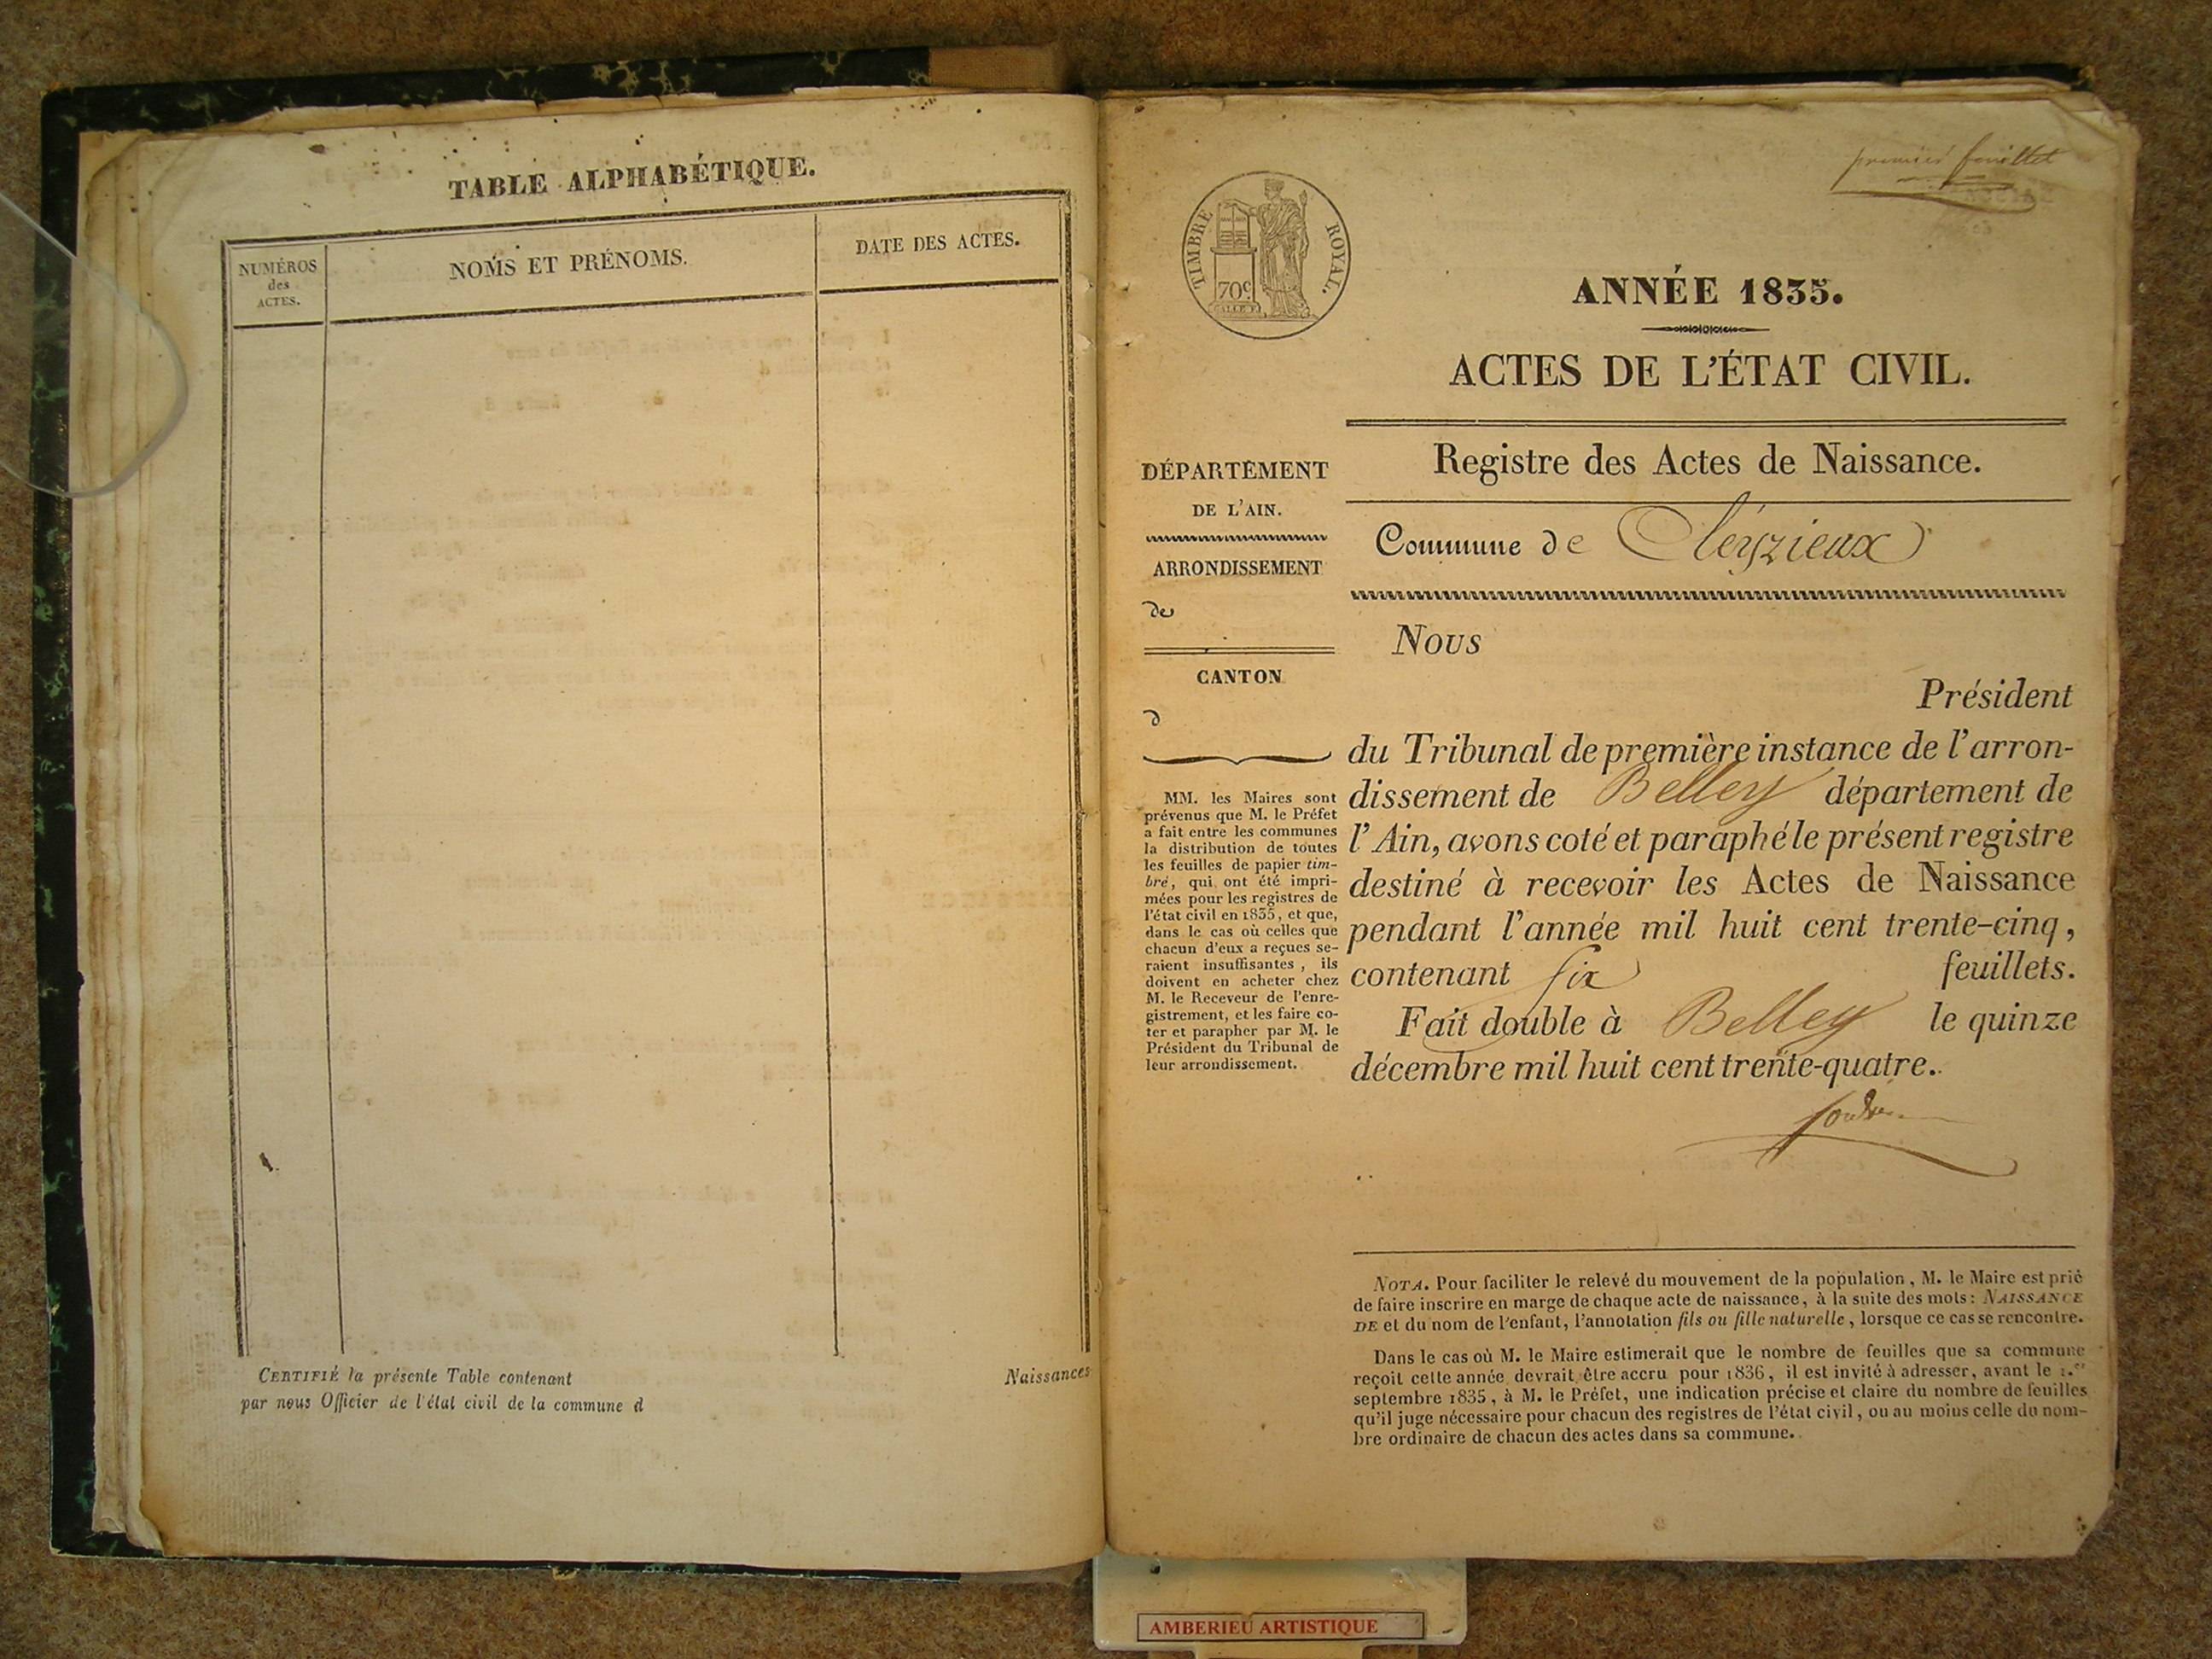 TABLE ALPHABÉTIQUE.
NUMÉROS
des
ACTES.
NOMS ET PRÉNOMS.
DATE DES ACTES.
CERTIFIÉ la présente Table contenant Naissances
par nous Officier de l'état civil de la commune d
premier feuillet
TIMBRE ROYAL.
70c
ANNÉE 1835.
ACTES DE L'ÉTAT CIVIL.
Registre des Actes de Naissance.
DÉPARTEMENT
DE L'AIN.
ARRONDISSEMENT
de
CANTON
d
MM. les Maires sont
prévenus que M. le Préfet
a fait entre les communes
la distribution de toutes
les feuilles de papier tim-
bré, qui ont été impri-
mées pour les registres de
l'état civil en 1835, et que,
dans le cas où celles que
chacun d'eux a reçues se-
raient insuffisantes, ils
doivent en acheter chez
M. le Receveur de l'enre-
gistrement, et les faire co-
ter et parapher par M. le
Président du Tribunal de
leur arrondissement.
Commune de Cleyzieux
Nous
Président
du Tribunal de première instance de l'arron-
dissement de Belley département de
l'Ain, avons coté et paraphé le présent registre
destiné à recevoir les Actes de Naissance
pendant l'année mil huit cent trente-cinq,
contenant six feuillets.
Fait double à Belley le quinze
décembre mil huit cent trente-quatre.
NOTA. Pour faciliter le relevé du mouvement de la population, M. le Maire est prié
de faire inscrire en marge de chaque acte de naissance, à la suite des mots: NAISSANCE
DE et du nom de l'enfant, l'annotation fils ou fille naturelle, lorsque ce cas se rencontre.
Dans le cas où M. le Maire estimerait que le nombre de feuilles que sa commune
reçoit cette année devrait être accru pour 1836, il est invité à adresser, avant le 1.er
septembre 1835, à M. le Préfet, une indication précise et claire du nombre de feuilles
qu'il juge nécessaire pour chacun des registres de l'état civil, ou au moius celle du nom-
bre ordinaire de chacun des actes dans sa commune.
AMBERIEU ARTISTIQUE